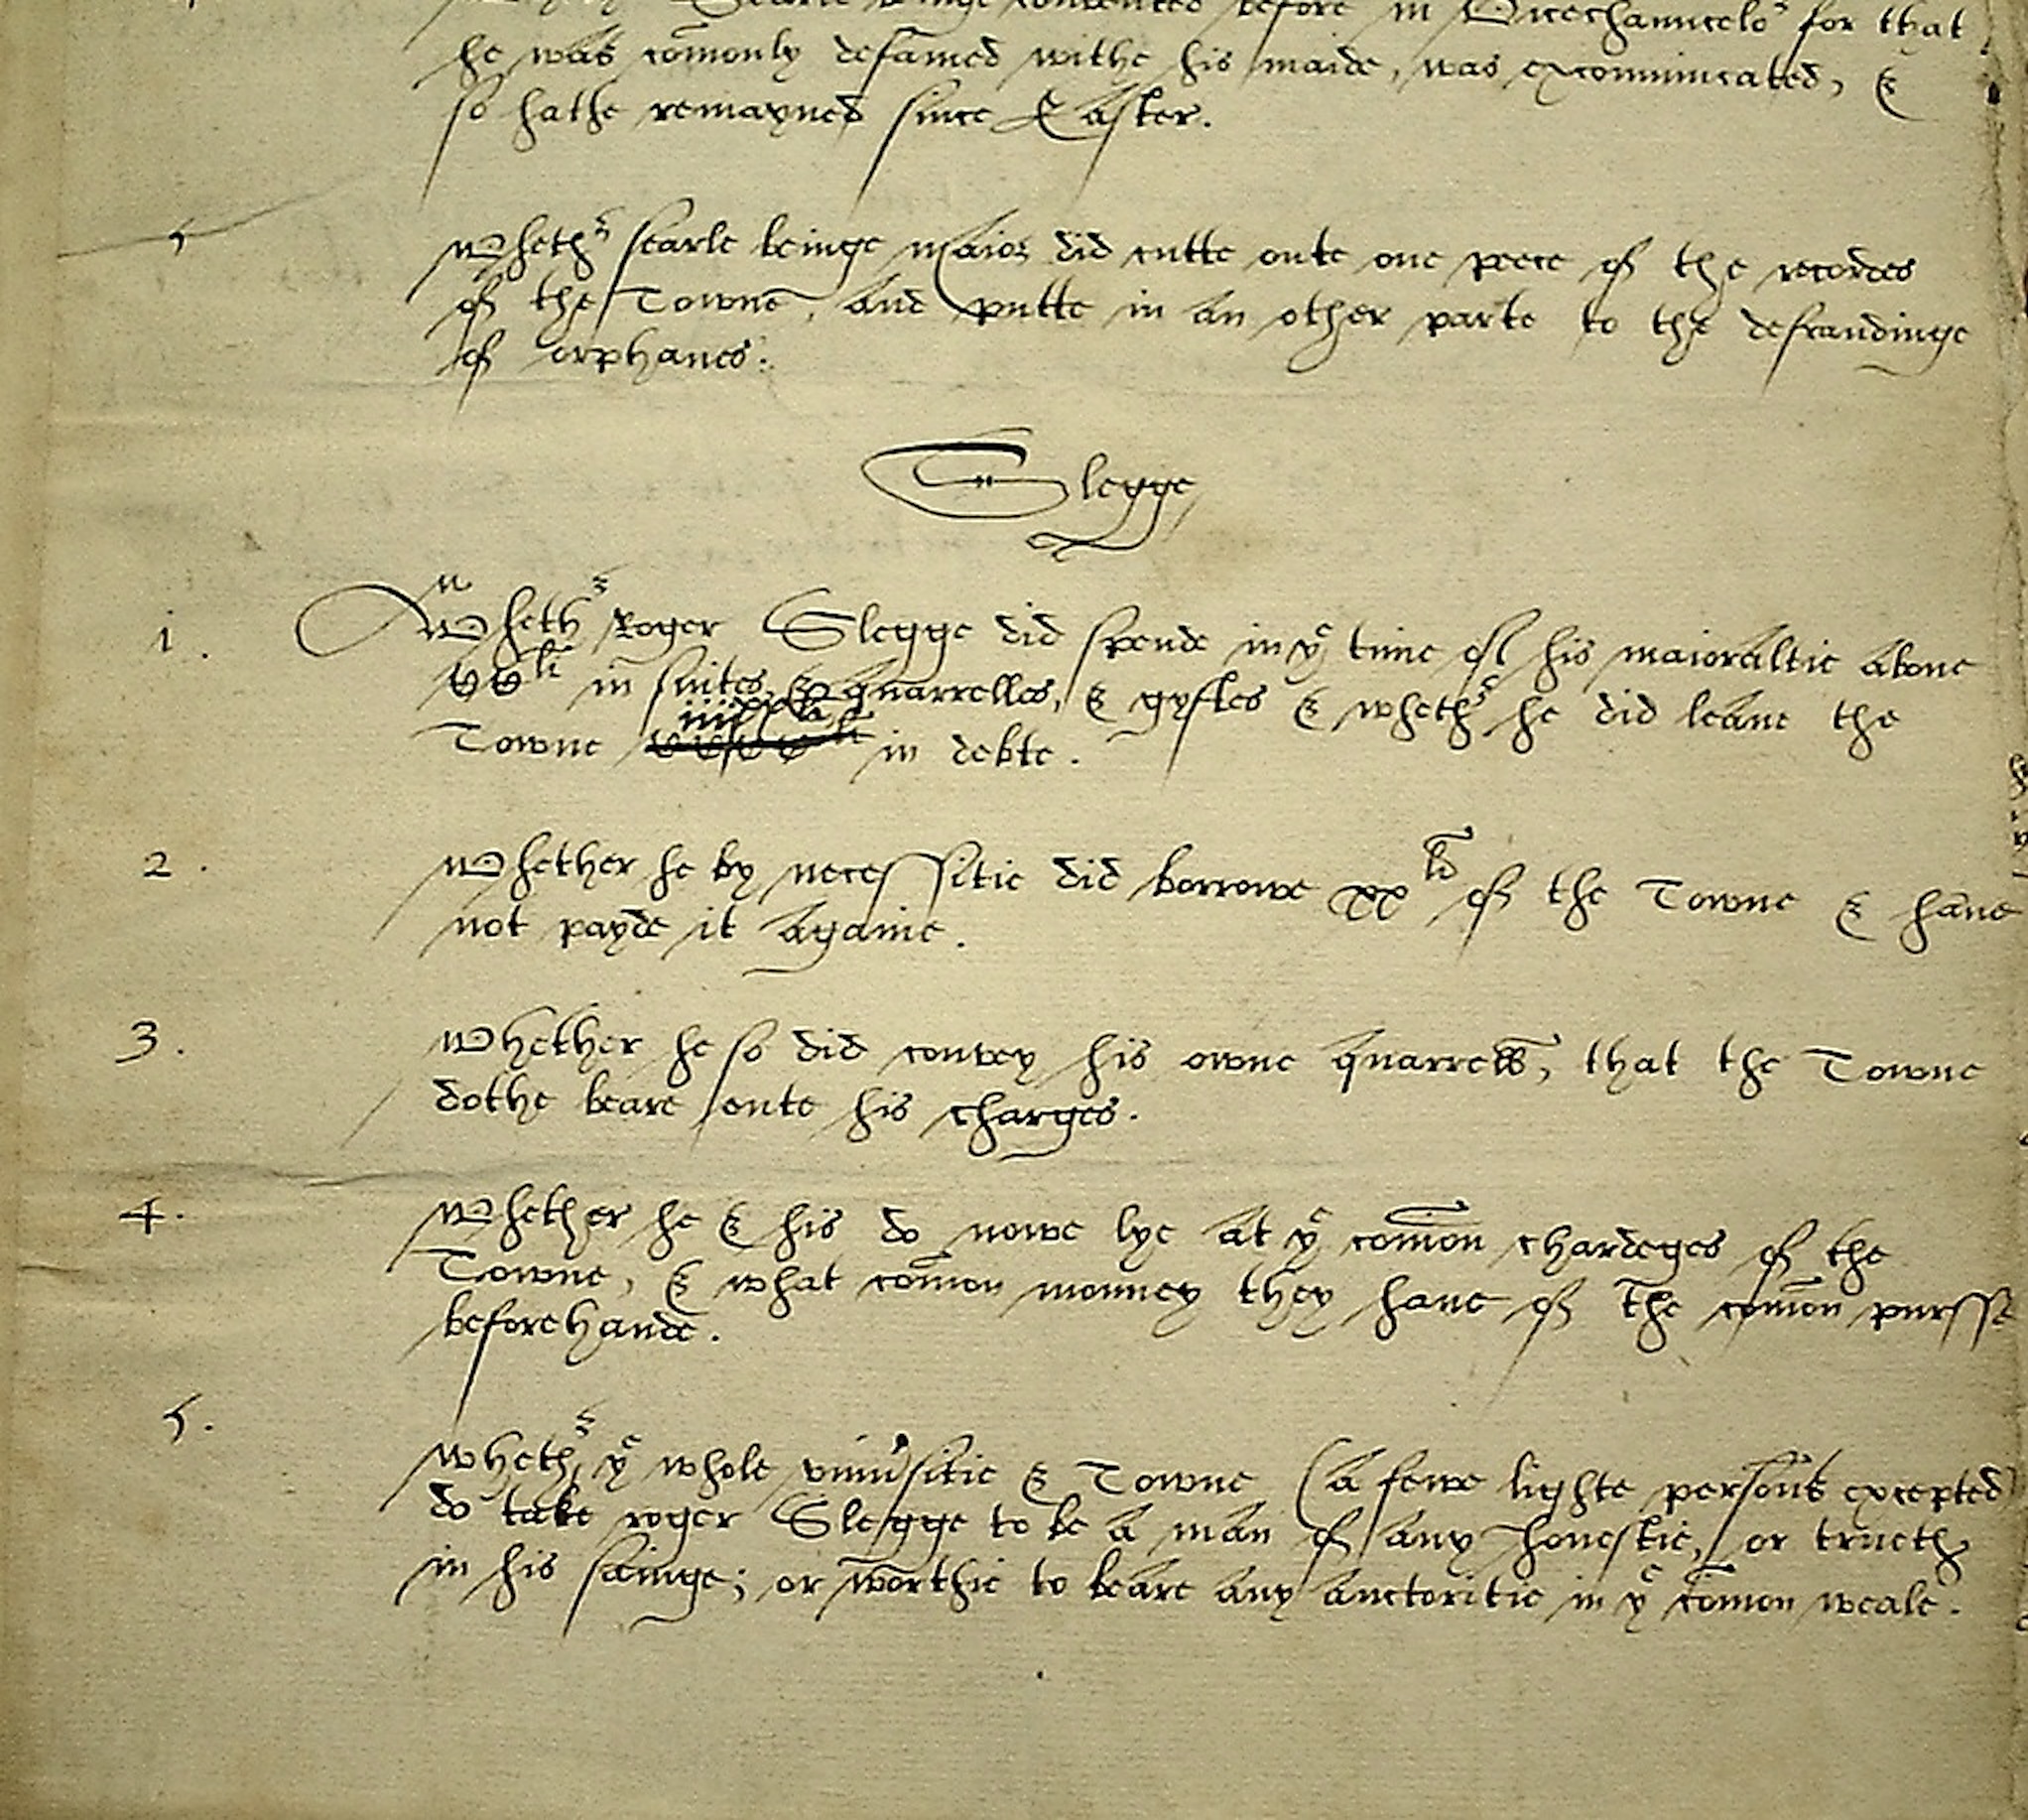 Searle beinge convented before m Vicechauncelor for that
he was comonly defamed withe his maide, was excommunicated, &
so hathe remayned since Easter.
5 Wheth^r Searle beinge Maior did cutte oute one peece of the recordes
of the Towne, and putte in an other parte to the defraudinge
of orphanes:
Slegge
1. Wheth^r Roger Slegge did spende in y^e time of his maioraltie above
in suites & quarrelles, & gyftes & wheth^r he did leave the
Towne in debte.
2. Whether he by necessitie did borrowe xx^li of the Towne & have
not payde it againe.
3. Whether he so did convey his owne quarrells, that the Towne
dothe beare oute his charges.
4. Whether he & his do nowe lye at y^e comõn chardeges of the
Towne, & what comõn monney they have of the comõn pursse
beforehande.
5. Wheth^r y^e whole univ'sitie & Towne (a fewe lighte persons excepted)
do take roger Slegge to be a man of any honestie, or trueth
in his sainge; or worthie to beare any auctoritie in y^e comõn weale.